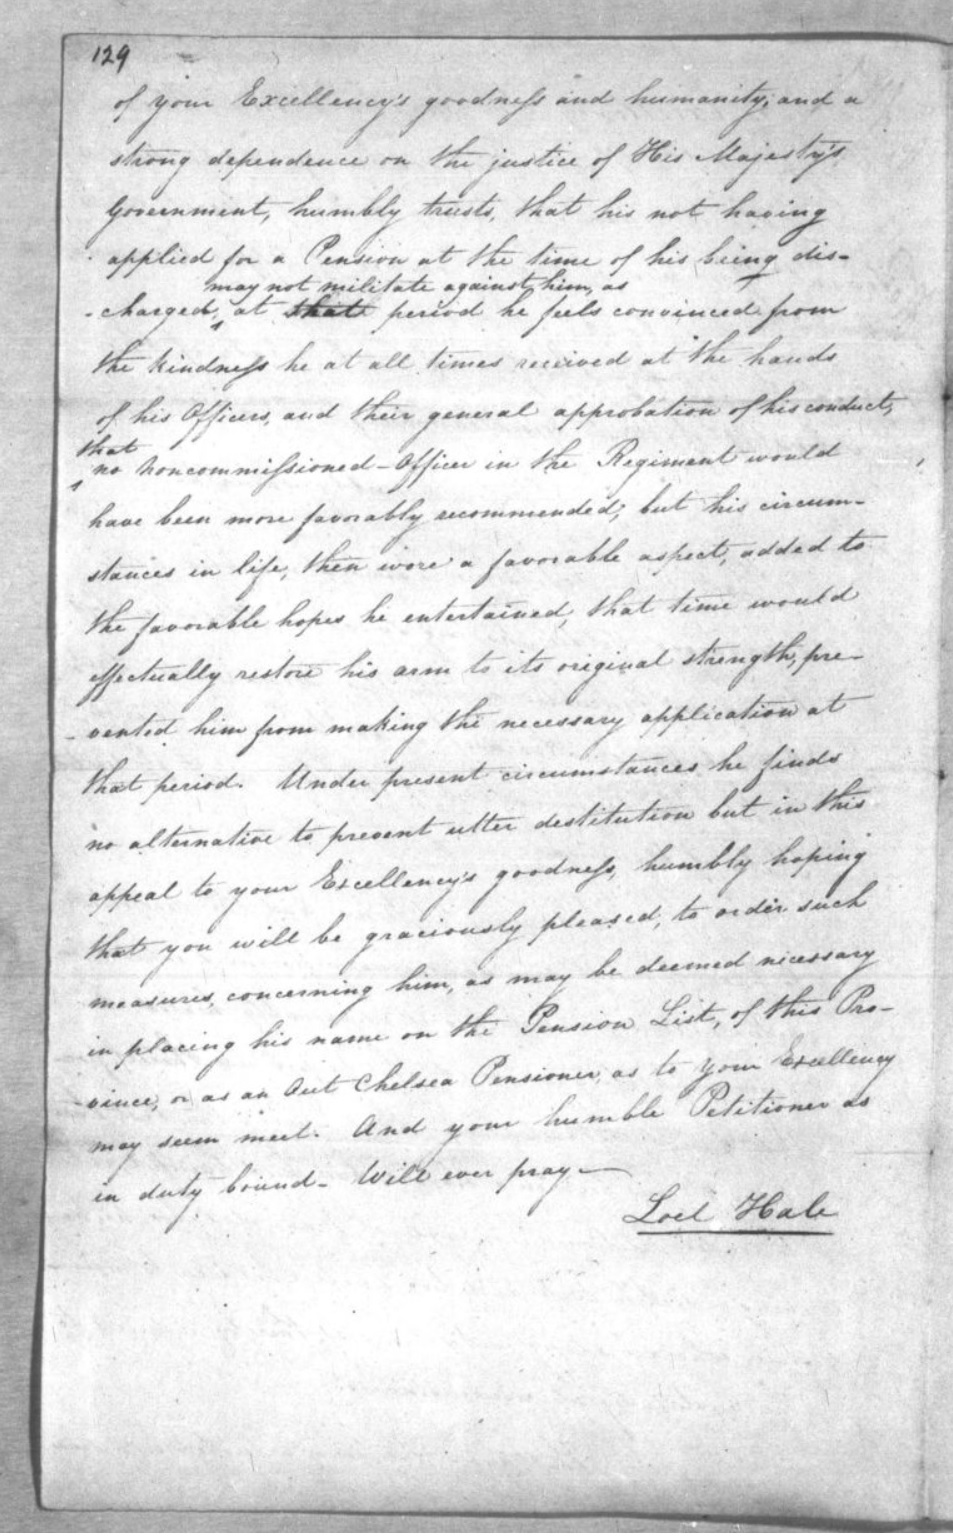 129
of your Excellency's goodness and humanity; and a
strong dependence on the justice of His Majesty's
Government, humbly trusts, that his not having
applied for a Pension at the time of his being dis-
may not militate against him, as
-charged, at that period he feels convinced from
the kindness he at all times received at the hands
of his Officers, and their general approbation of his conduct,
that
no Noncommissioned-Officer in the Regiment would
have been more favorably recommended; but his circum-
stances in life, then wore a favorable aspect, added to
the favorable hopes he entertained, that time would
effectually restore his arm to its original strength, pre-
-vented him from making the necessary application at
that period. Under present circumstances he finds
no alternative to prevent utter destitution but in this
appeal to your Excellency's goodness, humbly hoping
that you will be graciously pleased, to order such
measures, concerning him, as may be deemed necessary
in placing his name on the Pension List, of this Pro-
-vince, or as an Out Chelsea Pensioner, as to your Excellency
may seem meet. And your humble Petitioner as
in duty bound - Will ever pray—
Loel Hale